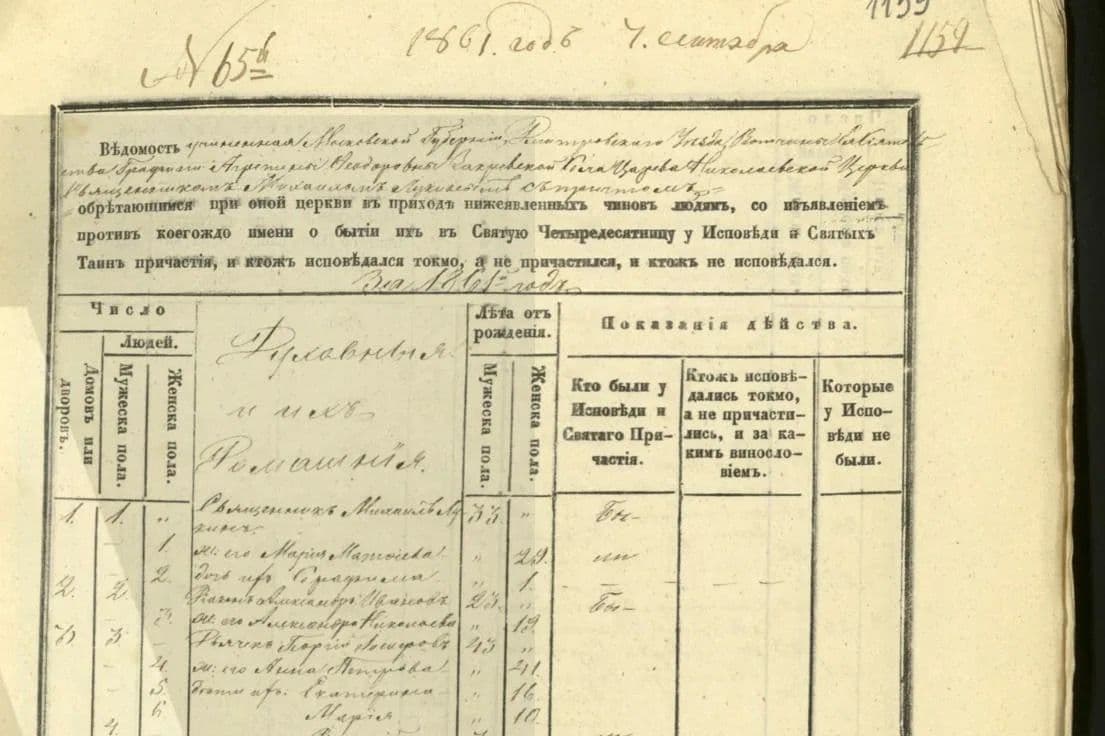 1159
1861. годъ 7. сентября
1159
№ 65й
Вѣдомость учиненная Московской Губерніи, Дмитровскаго Уѣзда, Вотчины Сіятель
ства Графини Агрепины Ѳеодоровны Закревской Села Царева Николаевской Церкви
Священникомъ Михаиломъ Лукинымъ съ причтомъ
обрѣтающимся при оной церкви въ приходѣ нижеявленныхъ чиновъ людямъ, со изъявленіемъ
противъ коегождо имени о бытіи ихъ въ Святую Четыредесятницу у Исповѣди и Святыхъ
Таинъ причастія, и ктожъ исповѣдался токмо, а не причастился, и ктожъ не исповѣдался.
За 1861й годъ.
Число
Людей.
Домовъ или дворовъ.
Мужеска пола.
Женска пола.
Духовныя
и ихъ
Домашнія.
Лѣта отъ
рожденія.
Мужеска пола.
Женска пола.
Показанія дѣйства.
Кто были у
Исповѣди и
Святаго При-
частія.
Ктожъ исповѣ-
дались токмо,
а не причасти-
лись, и за ка-
кимъ винослo-
віемъ.
Которые
у Испо-
вѣди не
были.
1. 1. " Священникъ Михаилъ Лу- 33 " Бы-
кинъ.
1. ж: его Марія Матѳіева " 29. ли
2. дочь ихъ Серафима " 1.
2. 2. Діаконъ Александръ Ивановъ 23 " Бы-
3. ж: его Александра Николаева " 19.
3. 3. Дьячекъ Георгій 43 "
4. ж: его Анна Петрова " 41.
5. дѣти ихъ: Екатерина " 16
6 Марія " 10.
4.